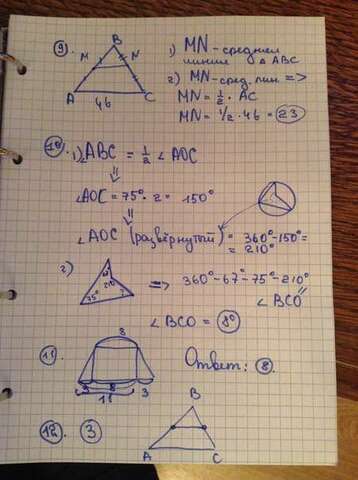 9.
B
M N
A C
46
1) MN - средняя
линия Δ ABC
2) MN - сред. лин. =>
MN = 1/2 · AC
MN = 1/2 · 46 = 23
10. 1) ∠ABC = 1/2 ∠AOC
⇓
∠AOC = 75° · 2 = 150°
⇓
∠AOC (развёрнутой) = 360° - 150° =
= 210°
2)
67
210°
75° ?
=> 360° - 67° - 75° - 210°
∠BCO
∠BCO = 8°
11.
8
3 8 3
11
Ответ: 8.
12. 3
B
A C